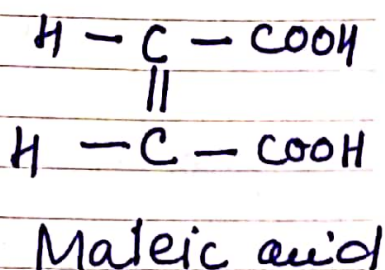 H - C - COOH
||
H - C - COOH
Maleic acid